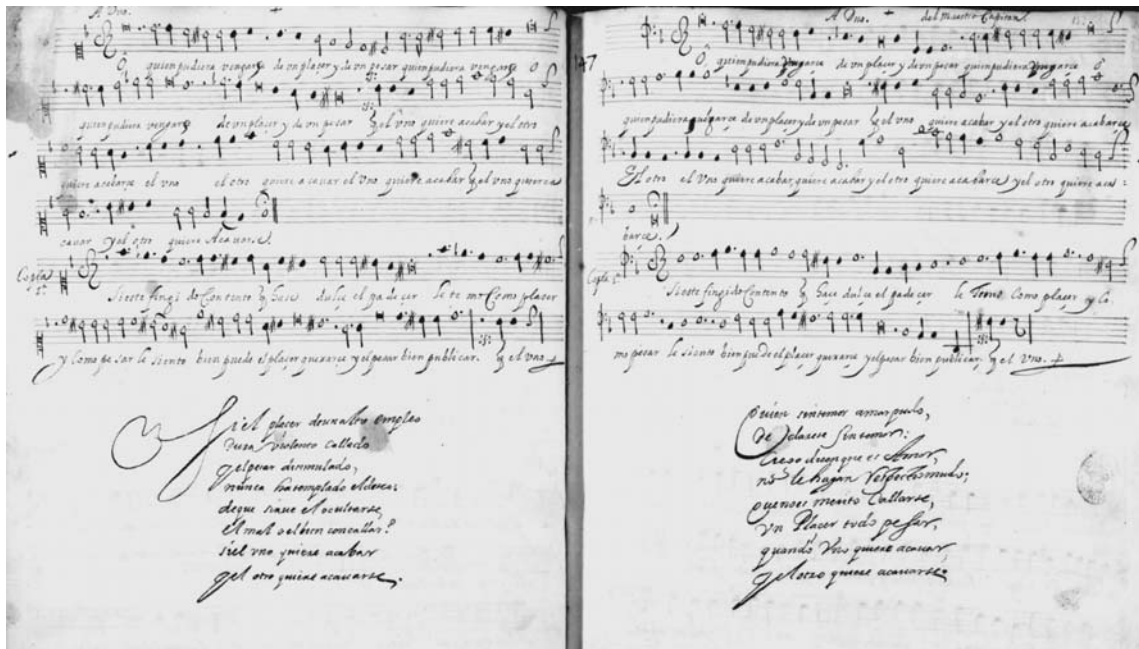 A Duo.
O, quien pudiera vengarse de vn plaçer y de vn pesar quien pudiera vengarse O
quien pudiera vengarse de vn plaçer y de vn pesar q̃ el vno quiere acabar y el otro
quiere acabarse el vno el otro quiere a cauar el Vno quiere acabar q̃ el vno quiere a
cauar y el otro quiere Acauarse.
Copla 1ª.
Si este fingido Contento q̃ hace dulce el padecer le temo Como placer
y Como pesar le siento bien puede el plaçer quexarse y el pesar bien publicar. q̃ el vno
Si el placer de nuestro empleo
Dura violento callado
y el pesar disimulado,
nunca ha templado el deseo:
de que sirue el ocultarse,
el mal o el bien con callar?
si el vno quiere acabar
y el otro quiere acauarse.
A Duo. del Maestro Capitan.
147
O, quien pudiera vengarse de vn plaçer y de vn pesar quien pudiera vengarse o
quien pudiera vengarse de vn plaçer y de vn pesar q̃ el vno quiere acabar y el otro quiere acabarçe
El otro el Vno quiere acabar, quiere acabar y el otro quiere acabarce y el otro quiere aca-
barce.
Copla 1ª.
Si este fingido Contento q̃ hace dulce el padecer le Temo Como placer y Co-
mo pesar le siento bien puede el plaçer quexarse y el pesar bien publicar. q̃ el Vno.
Quien sin temor amar pudo,
de sin temor:
Creo dicen que es Amor,
no le hagan
que no es merito Callarse,
Vn Placer todo pesar,
quando Vno quiere acauar,
y el otro quiere acauarse.